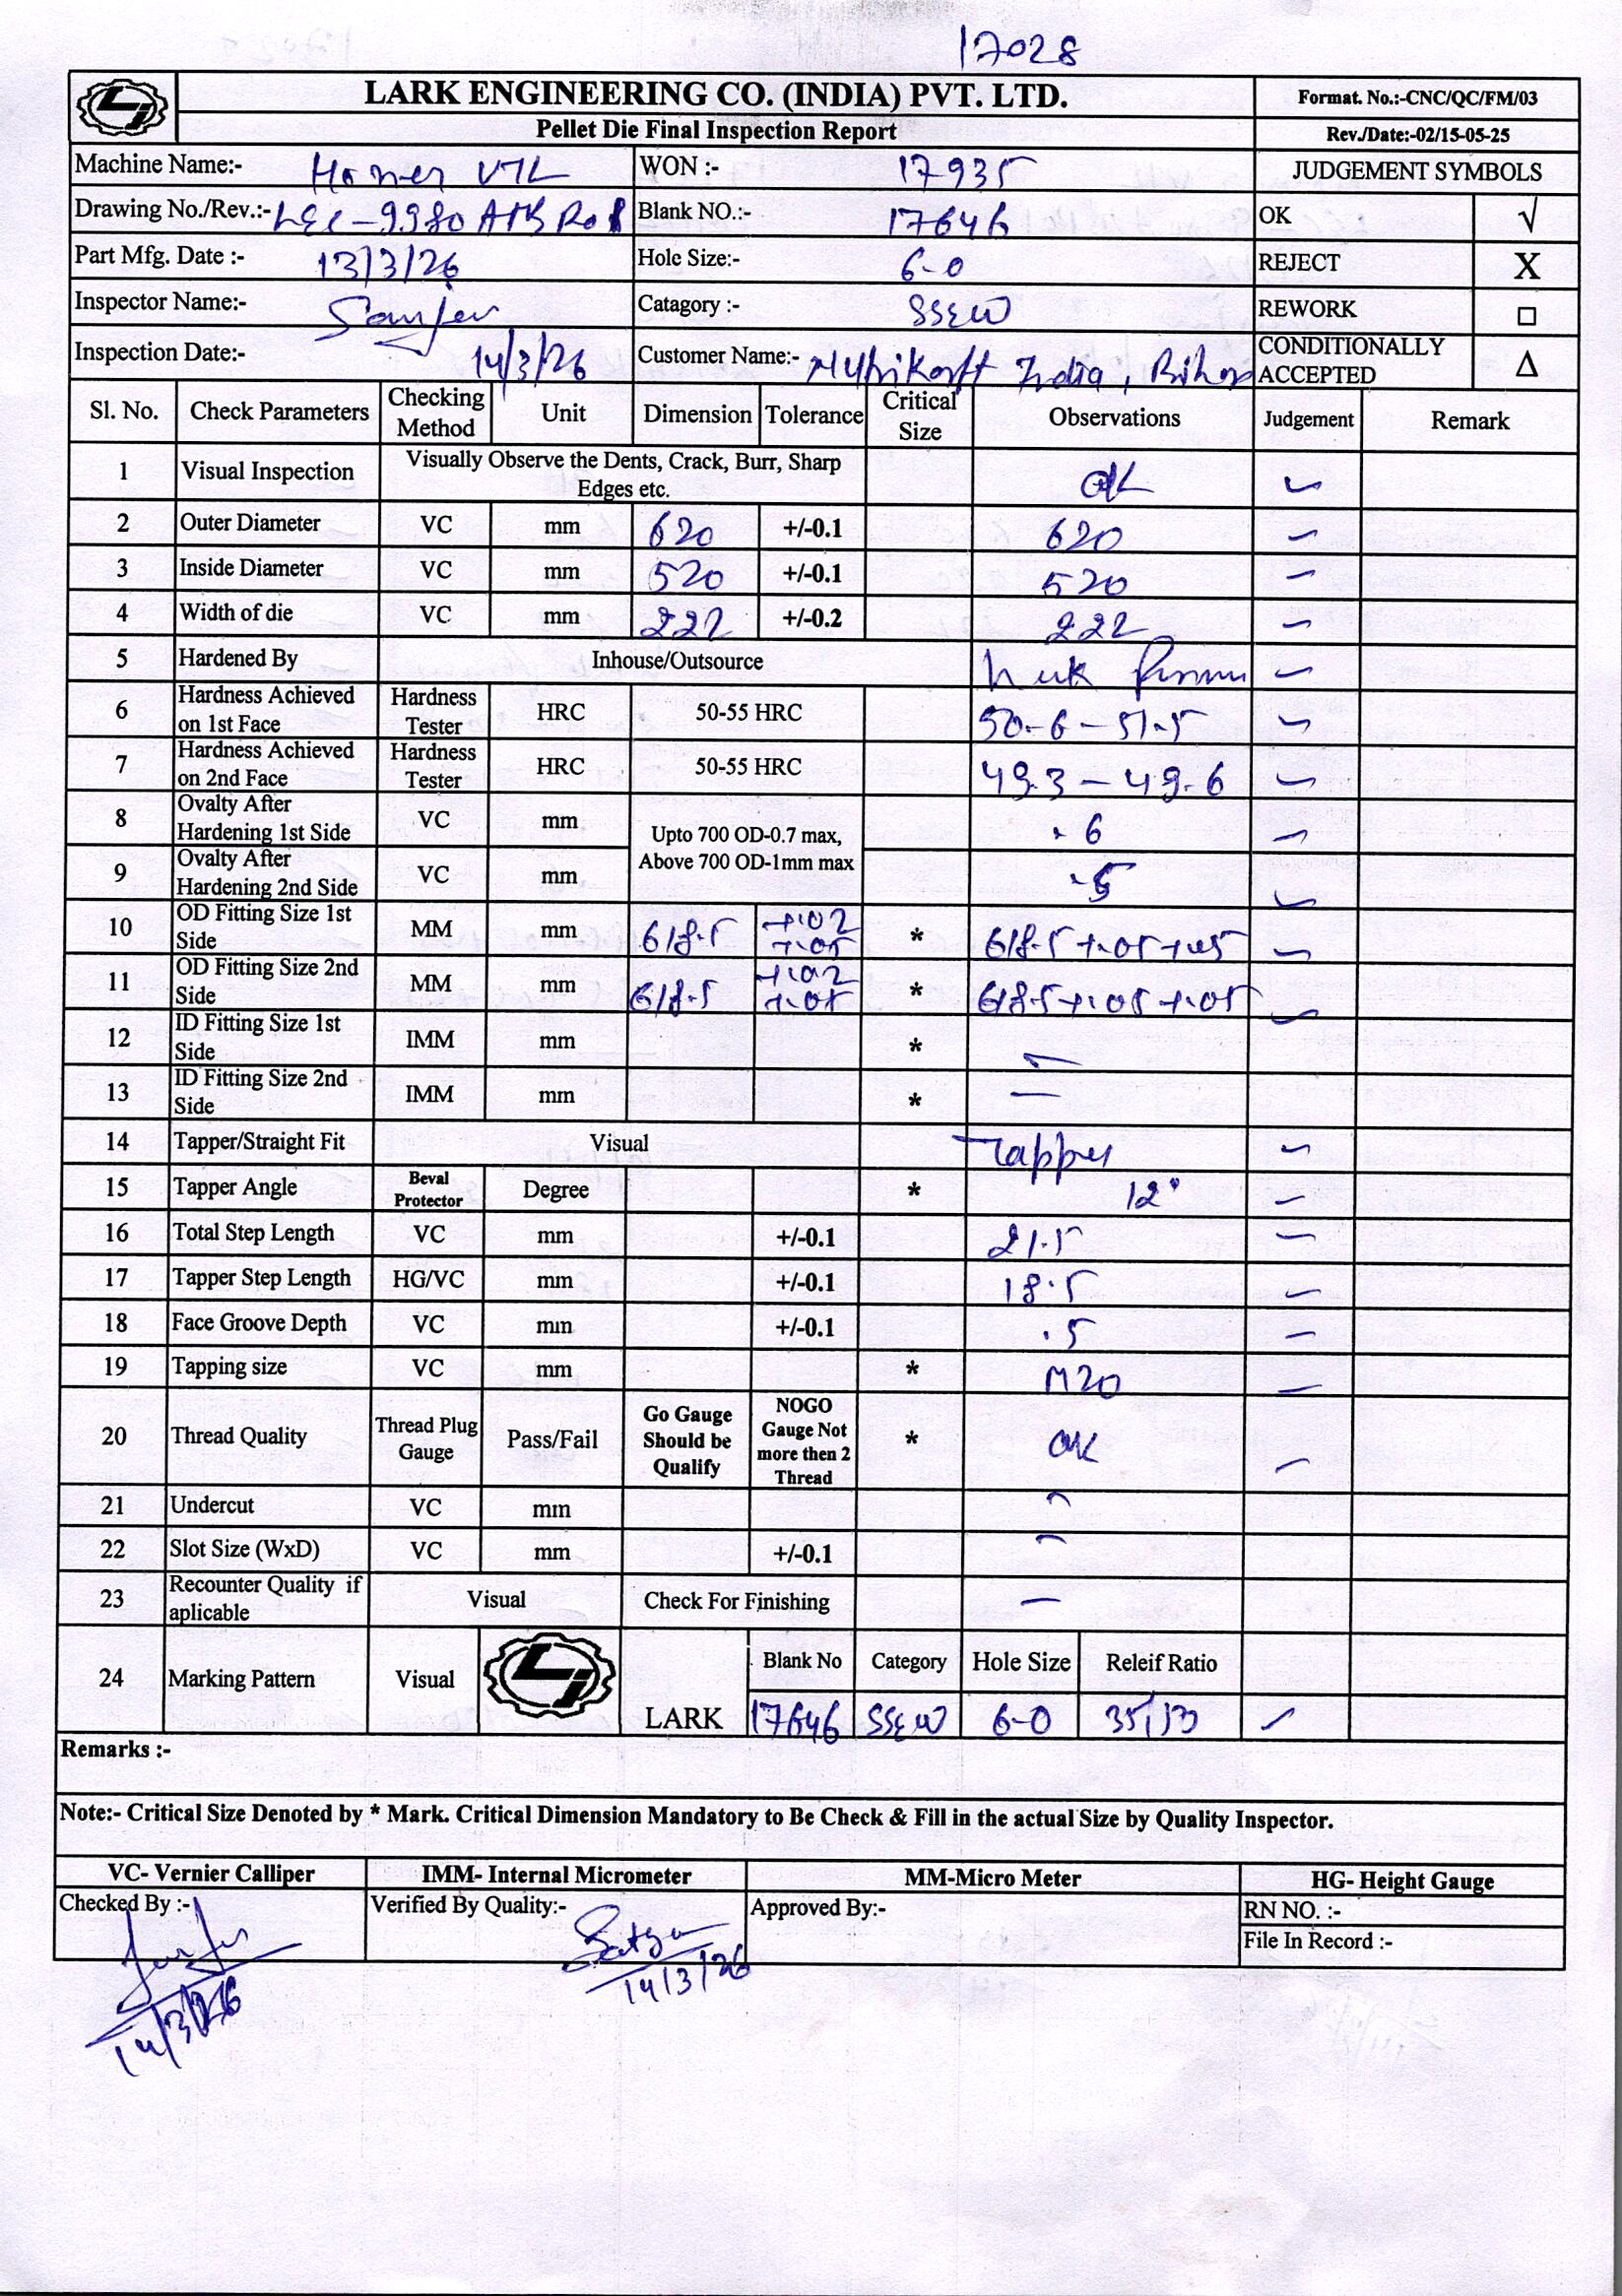 17028
LARK ENGINEERING CO. (INDIA) PVT. LTD.
Format. No.:-CNC/QC/FM/03
Pellet Die Final Inspection Report
Rev./Date:-02/15-05-25
Machine Name:- VTL WON :- 17935 JUDGEMENT SYMBOLS
Drawing No./Rev.:- LEC-9980 Blank NO.:- 17646 OK √
Part Mfg. Date :- 13/3/26 Hole Size:- 6-0 REJECT X
Inspector Name:- Catagory :- SSEW REWORK □
Inspection Date:- 14/3/26 Customer Name:- India, CONDITIONALLY ACCEPTED Δ
Sl. No. Check Parameters Checking Method Unit Dimension Tolerance Critical Size Observations Judgement Remark
1 Visual Inspection Visually Observe the Dents, Crack, Burr, Sharp Edges etc. OK
2 Outer Diameter VC mm 620 +/-0.1 620
3 Inside Diameter VC mm 520 +/-0.1 520
4 Width of die VC mm 222 +/-0.2 222
5 Hardened By Inhouse/Outsource
6 Hardness Achieved on 1st Face Hardness Tester HRC 50-55 HRC 50.6 - 51.5
7 Hardness Achieved on 2nd Face Hardness Tester HRC 50-55 HRC 49.3 - 49.6
8 Ovalty After Hardening 1st Side VC mm Upto 700 OD-0.7 max, Above 700 OD-1mm max .6
9 Ovalty After Hardening 2nd Side VC mm .5
10 OD Fitting Size 1st Side MM mm 618.5 +.02 +.05 * 618.5 +.05 +.05
11 OD Fitting Size 2nd Side MM mm 618.5 +.02 +.05 * 618.5 +.05 +.05
12 ID Fitting Size 1st Side IMM mm * —
13 ID Fitting Size 2nd Side IMM mm * —
14 Tapper/Straight Fit Visual Tapper
15 Tapper Angle Beval Protector Degree * 12°
16 Total Step Length VC mm +/-0.1 21.5
17 Tapper Step Length HG/VC mm +/-0.1 18.5
18 Face Groove Depth VC mm +/-0.1 .5
19 Tapping size VC mm * M20
20 Thread Quality Thread Plug Gauge Pass/Fail Go Gauge Should be Qualify NOGO Gauge Not more then 2 Thread * OK
21 Undercut VC mm —
22 Slot Size (WxD) VC mm +/-0.1 —
23 Recounter Quality if aplicable Visual Check For Finishing —
24 Marking Pattern Visual LARK Blank No Category Hole Size Releif Ratio
17646 SSEW 6-0
Remarks :-
Note:- Critical Size Denoted by * Mark. Critical Dimension Mandatory to Be Check & Fill in the actual Size by Quality Inspector.
VC- Vernier Calliper IMM- Internal Micrometer MM-Micro Meter HG- Height Gauge
Checked By :- Verified By Quality:- Approved By:- RN NO. :-
File In Record :-
14/3/26
14/3/26